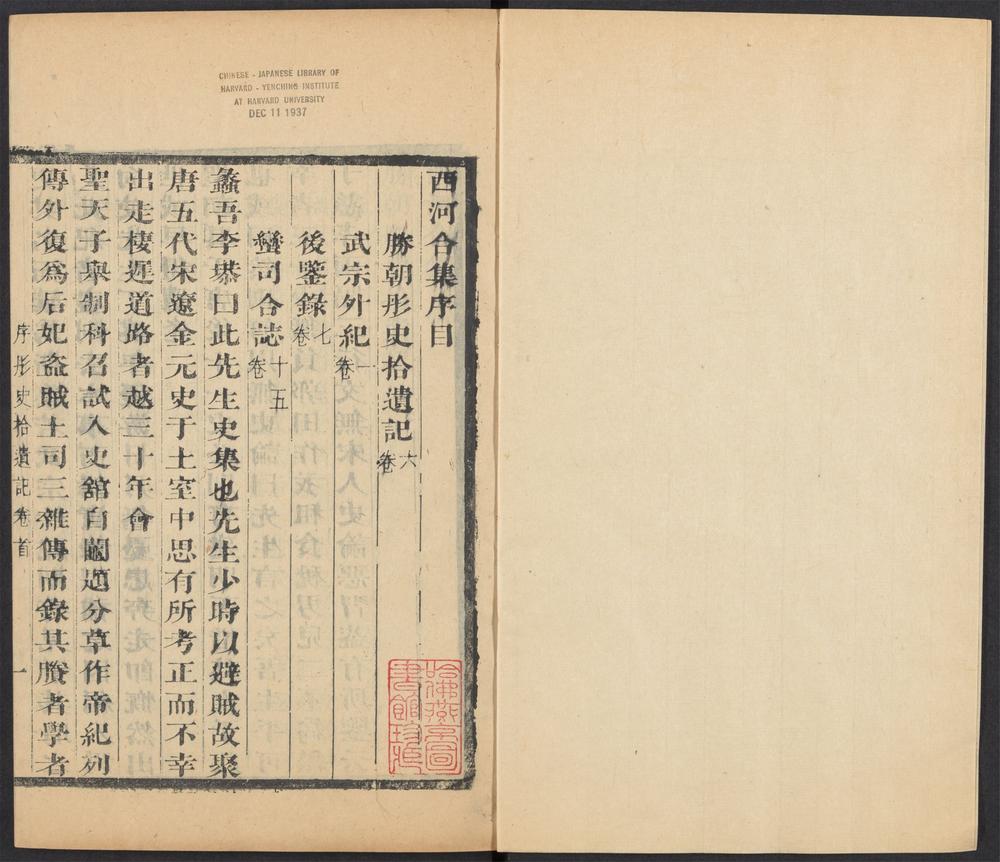 CHINESE - JAPANESE LIBRARY OF
HARVARD - YENCHING INSTITUTE
AT HARVARD UNIVERSITY
DEC 11 1937
西河合集序目
勝朝彤史拾遺記六卷
武宗外紀一卷
後鑒錄七卷
蠻司合誌十五卷
蠡吾李塨曰此先生史集也先生少時以避賊故聚
唐五代宋遼金元史于土室中思有所考正而不幸
出走棲遲道路者越三十年會
聖天子舉制科召試入史舘自鬮題分草作帝紀列
傳外復爲后妃盜賊土司三雜傳而錄其賸者學者
序彤史拾遺記卷首 一
哈佛燕京圖書館珍藏